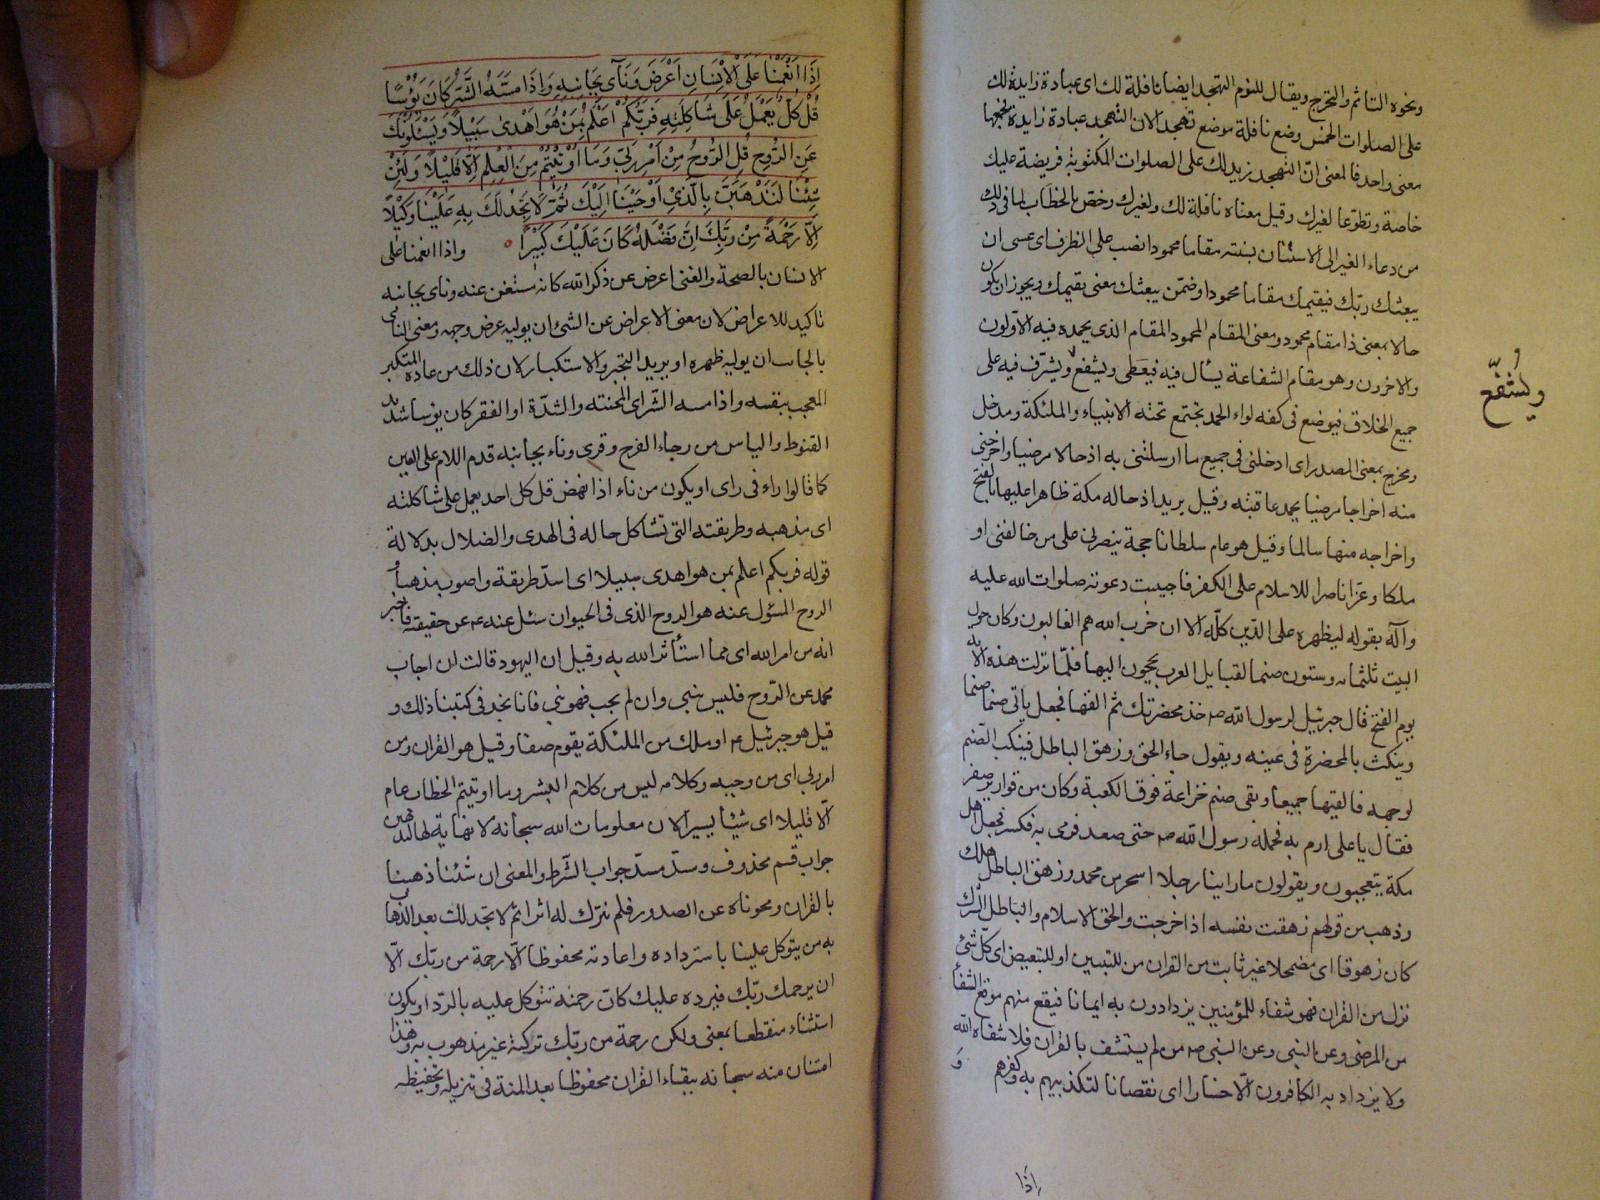 ونحوه التاثم والتحرج ويقال للنوم التهجد ايضا نافلة لك اى عبادة زايدة لك
على الصلوات الخمس وضع نافلة موضع تهجدا لان التهجد عبادة زايدة يجمعها
معنى واحد فالمعنى انّ التهجد زيد لك على الصلوات المكتوبة فريضة عليك
خاصة وتطوّعا لغيرك وقيل معناه نافلة لك ولغيرك وخص بالخطاب لما فى ذلك
من دعاء الغير الى الاستنان بسنته مقاما محمودا نصب على الظرف اى عسى ان
يبعثك ربّك فيقيمك مقاما محمودا وضمّن يبعثك معنى يقيمك ويجوز ان يكون
حالا بمعنى ذا مقام محمود ومعنى المقام المحمود المقام الذى يحمده فيه الاوّلون
والاخرون وهو مقام الشفاعة يسأل فيه فيعطى ويشفع ويشرّف فيه على
ويُشفّع
جميع الخلائق فيوضع فى كفه لواء الحمد يجتمع تحته الانبياء والملئكة ومدخل
ومخرج بمعنى المصدر اى ادخلنى فى جميع ما ارسلتنى به ادخالا مرضيا واخرجنى
منه اخراجا مرضيا يحمد عاقبته وقيل يريد ادخاله مكة ظاهرا عليها بالفتح
واخراجه منها سالما وقيل هو عام سلطانا حجة تنصرنى على من خالفنى او
ملكا وعزّا ناصرا للاسلام على الكفر فاجيبت دعوته صلوات الله عليه
وآله بقوله ليظهره على الدّين كلّه الا ان حزب الله هم الغالبون وكان حول
البيت ثلثمائه وستون صنما لقبايل العرب يحجون اليها فلمّا نزلت هذه الاية
يوم الفتح قال جبرئيل لرسول اللّه صه خذ مخضرتك ثم القها فجعل ياتى صنما صنما
وينكث بالمخضرة فى عينه ويقول جاء الحق وزهق الباطل فينكب الصنم
لوجهه فالقيها جميعا وبقى صنم خزاعة فوق الكعبة وكان من قوارير صفر
فقال يا على ارم به فحمله رسول اللّه صه حتى صعد فرمى به فكسر فجعل اهل
مكة يتعجبون ويقولون ما راينا رجلا اسحر من محمد وزهق الباطل هلك
وذهب من قولهم زهقت نفسه اذا خرجت والحق الاسلام والباطل الشرك
كان زهوقا اى مضمحلا غير ثابت من القران من للتبيين او للتبعيض اى كلّ شئ
نزل من القران فهو شفاء للمؤمنين يزدادون به ايمانا فيقع منهم موقع الشفأ
من المرضى وعن النبى صه من لم يستشف بالقران فلا شفاه اللّه
ولا يزداد به الكافرون الّا خسارا اى نقصانا لتكذيبهم به وكفرهم وَ
اِذَا
اِذَا اَنْعَمْنَا عَلَى الْاِنْسَانِ اَعْرَضَ وَنَآى بِجَانِبِهِ وَاِذَا مَسَّهُ الشَّرُّ كَانَ يَؤُسًا
قُلْ كُلٌّ يَعْمَلُ عَلَى شَاكِلَتِهِ فَرَبُّكُمْ اَعْلَمُ بِمَنْ هُوَ اَهْدَى سَبِيلًا وَيَسْئَلُونَكَ
عَنِ الرُّوحِ قُلِ الرُّوحُ مِنْ اَمْرِ رَبِّى وَمَا اُوتِيتُمْ مِنَ الْعِلْمِ اِلَّا قَلِيلًا وَلَئِنْ
شِئْنَا لَنَذْهَبَنَّ بِالَّذِى اَوْحَيْنَا اِلَيْكَ ثُمَّ لَا تَجِدُ لَكَ بِهِ عَلَيْنَا وَكِيلًا
اِلَّا رَحْمَةً مِنْ رَبِّكَ اِنَّ فَضْلَهُ كَانَ عَلَيْكَ كَبِيْرًا واذا انعمنا على
الانسان بالصحة والغنى اعرض عن ذكر الله كانه مستغن عنه وناى بجانبه
تاكيد للاعراض لان معنى الاعراض عن الشئ ان يوليه عرض وجهه ومعنى النأى
بالجانب ان يوليه ظهره او يريد التجبر والاستكبار لان ذلك من عادة المتكبر
المعجب بنفسه واذا مسه الشّر اى المحنته والشدّة او الفقر كان يؤسا شديد
القنوط والياس من رجاء الفرج وقرى وناء بجانبه قدم اللام على العين
كما قالوا راء فى راى او يكون من ناء اذا نهض قل كل احد يعمل على شاكلته
اى مذهبه وطريقته التى تشاكل حاله فى الهدى والضلال بدلالة
قوله فربكم اعلم بمن هو اهدى سبيلا اى اسدّ طريقة واصوب مذهبا
الروح المسؤل عنه هو الروح الذى فى الحيوان سئل عنه عن حقيقته فاخبر
انه من امر الله اى مما استأثر الله به وقيل ان اليهود قالت ان اجاب
محمد عن الرّوح فليس بنبى وان لم يجب فهو نبى فانا نجد فى كتبنا ذلك و
قيل هو جبرئيل عه او ملك من الملئكة يقوم صفا وقيل هو القران ومن
امر ربى اى من وحيه وكلامه ليس من كلام البشر وما اوتيتم الخطاب عام
الّا قليلا اى شيئا يسيرا لان معلومات الله سبحانه لا نهاية لها لنذهبن
جواب قسم محذوف وسدّ مسدّ جواب الشّرط والمعنى ان شئنا ذهبنا
بالقران ومحوناه عن الصدور فلم نترك له اثرا ثم لا تجد لك بعد الذهاب
به من يتوكل علينا باسترداده واعادته محفوظا الّا رحمة من ربّك الّا
ان يرحمك ربّك فيرده عليك كانّ رحمته تتوكل عليه بالردّ او يكون
استثناء منقطعا بمعنى ولكن رحمة من ربّك تركته غير مذهوب به وهذا
امتنان منه سبحانه ببقاء القران محفوظا بعد المنة فى تنزيله وتحفيظه